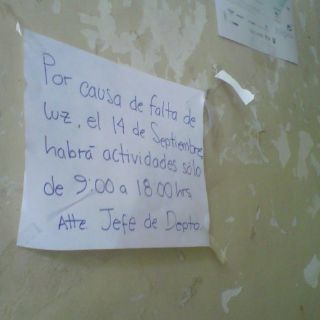 Por causa de falta de
luz, el 14 de Septiembre,
habrá actividades sólo
de 9:00 a 18:00 hrs
Atte. Jefe de Depto.